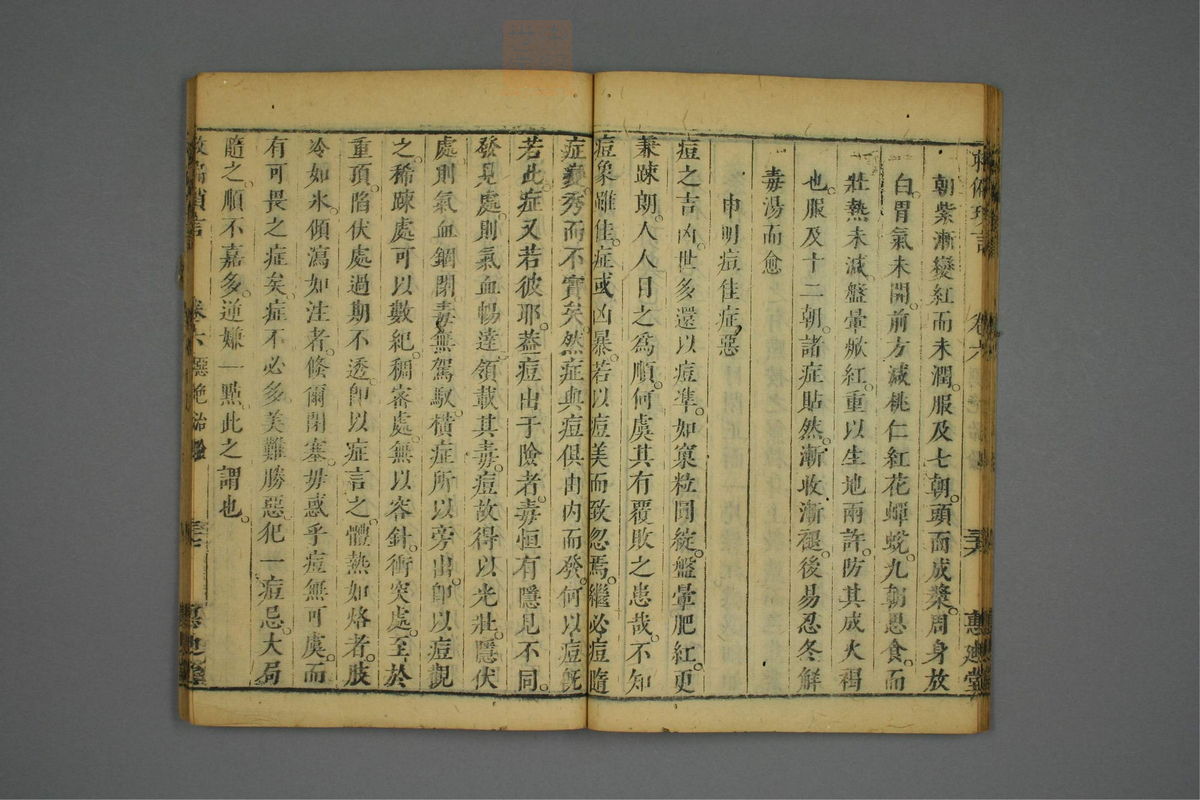 救偏瑣言 卷六 三六 惠迪堂
朝紫漸變紅而未潤。服及七朝。頭面成漿。周身放
白。胃氣未開。前方減桃仁紅花蟬蛻。九朝思食。而
壯熱未減。盤暈焮紅。重以生地兩許。防其成火褐
也。服及十二朝。諸症貼然。漸收漸褪。後易忍冬解
毒湯而愈
申明痘佳症惡
痘之吉凶。世多還以痘準。如窠粒圓綻。盤暈肥紅。更
兼踈朗。人人目之為順。何虞其有覆敗之患哉。不知
痘象雖佳。症或凶暴。若以痘美而致忽焉。繼必痘隨
症變。秀而不實矣。然症與痘俱由內而發。何以痘旣
若此。症又若彼耶。葢痘出于險者。毒恒有隱見不同。
發見處。則氣血暢達。領載其毒。痘故得以光壯。隱伏
處。則氣血錮閉。毒無駕馭。橫症所以旁出。卽以痘觀
之。稀踈處可以數紀。稠密處。無以容針。衝突處。至於
重頂。陷伏處過期不透。卽以症言之。體熱如烙者。肢
冷如氷。傾瀉如注者。倐爾閉塞。毋惑乎痘無可虞。而
有可畏之症矣。症不必多。美難勝惡。犯一痘忌。大局
隨之。順不嘉多。逆嫌一點。此之謂也。
救偏瑣言 卷六 治驗 三七 惠迪堂